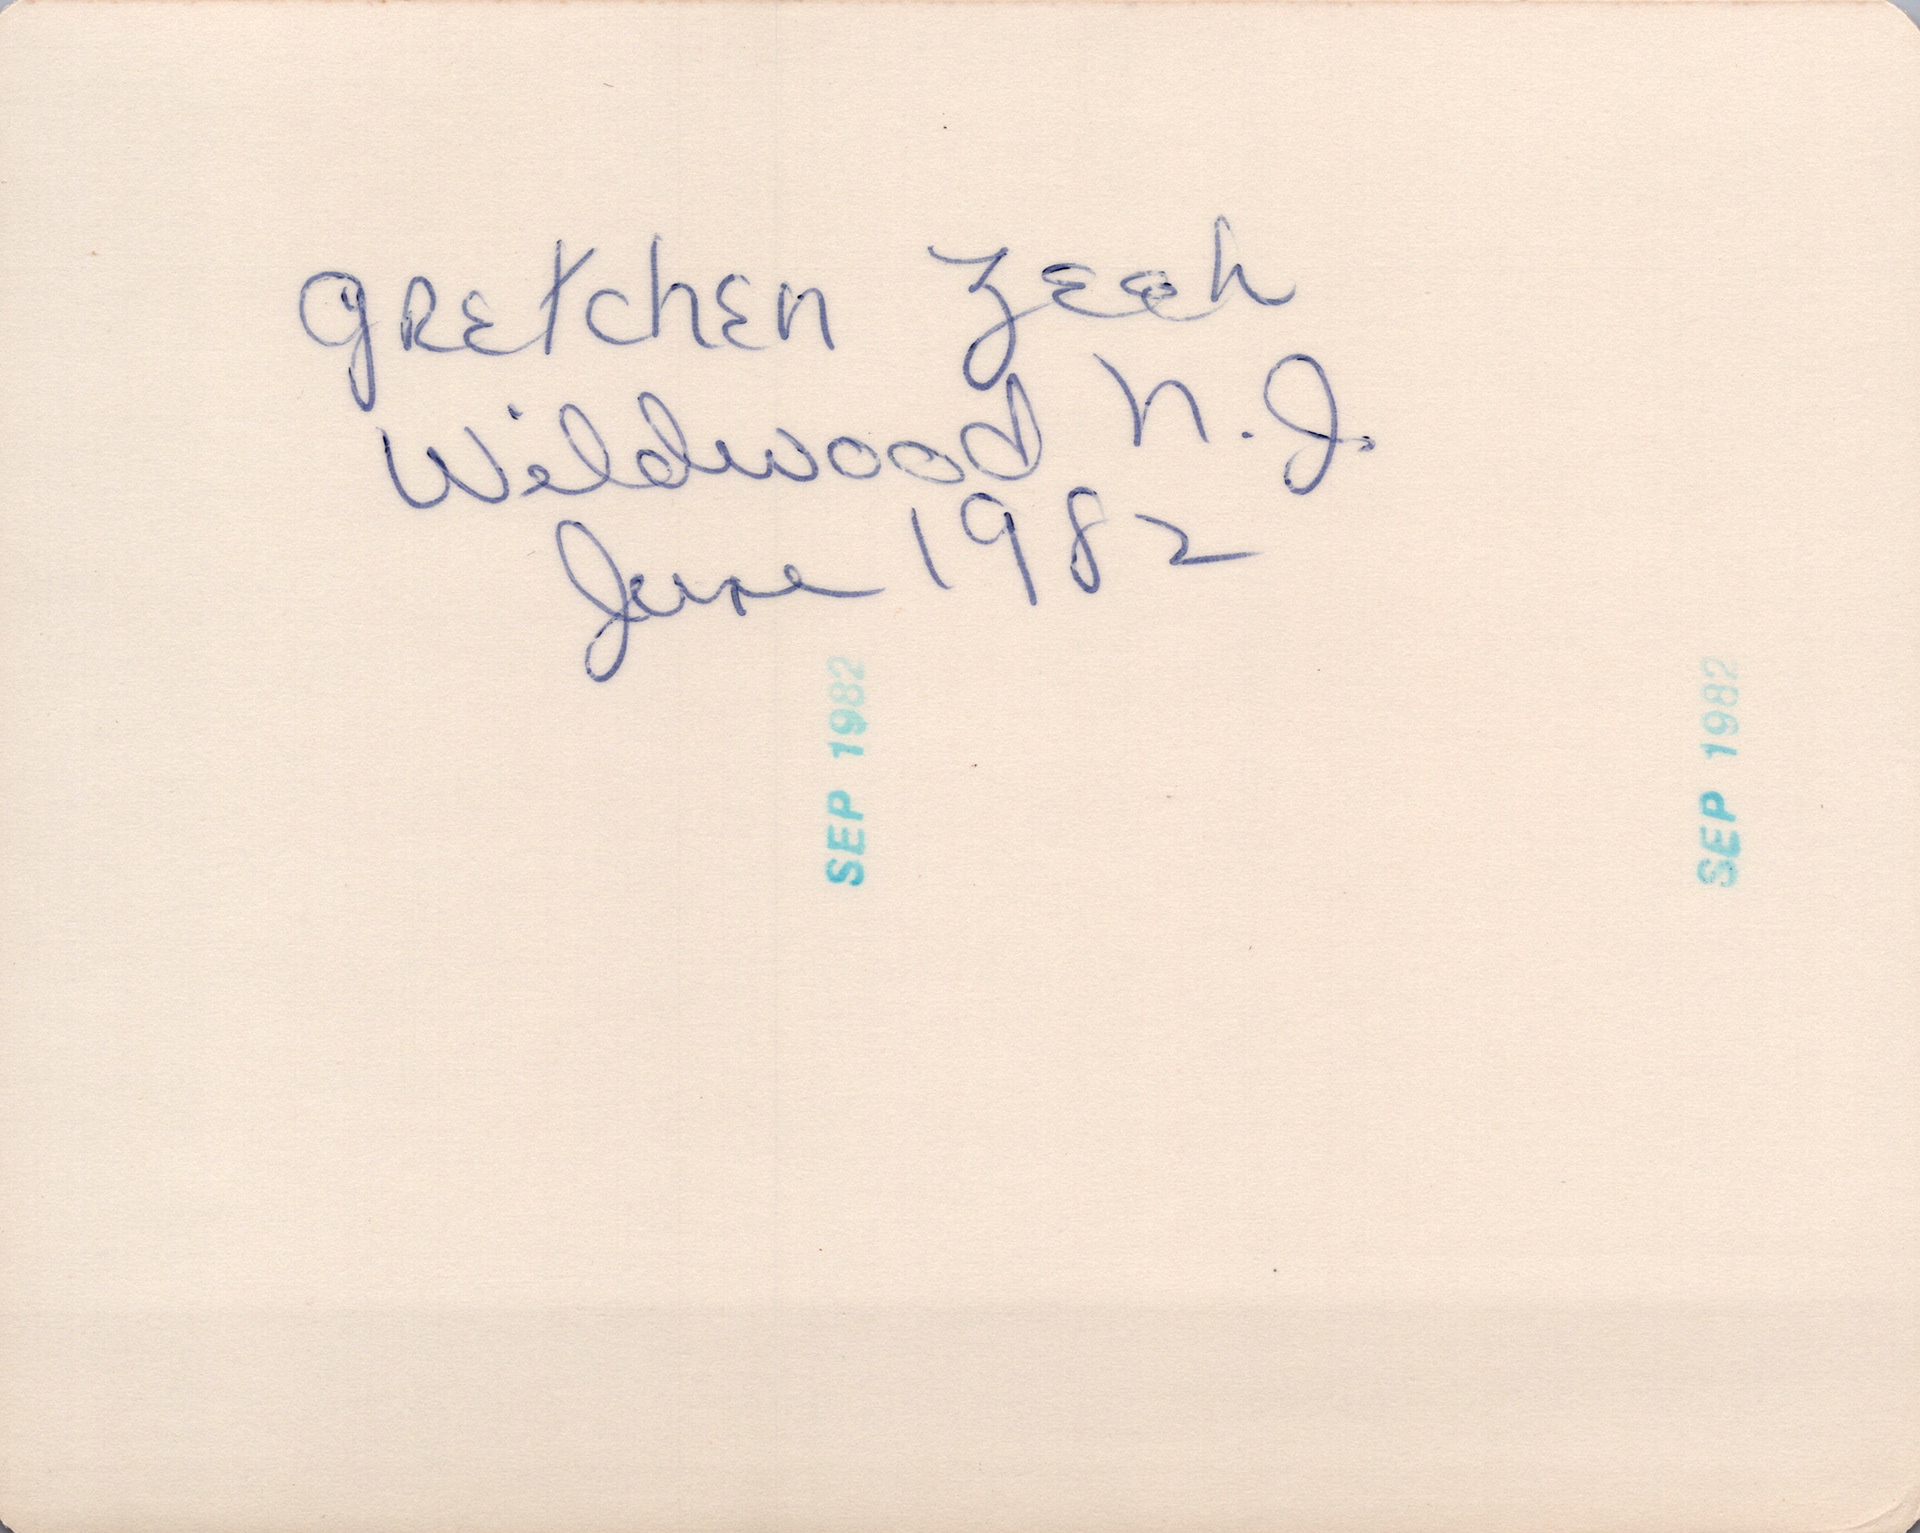 Gretchen Zeeh
Wildwood N.J.
June 1982
SEP 1982
SEP 1982